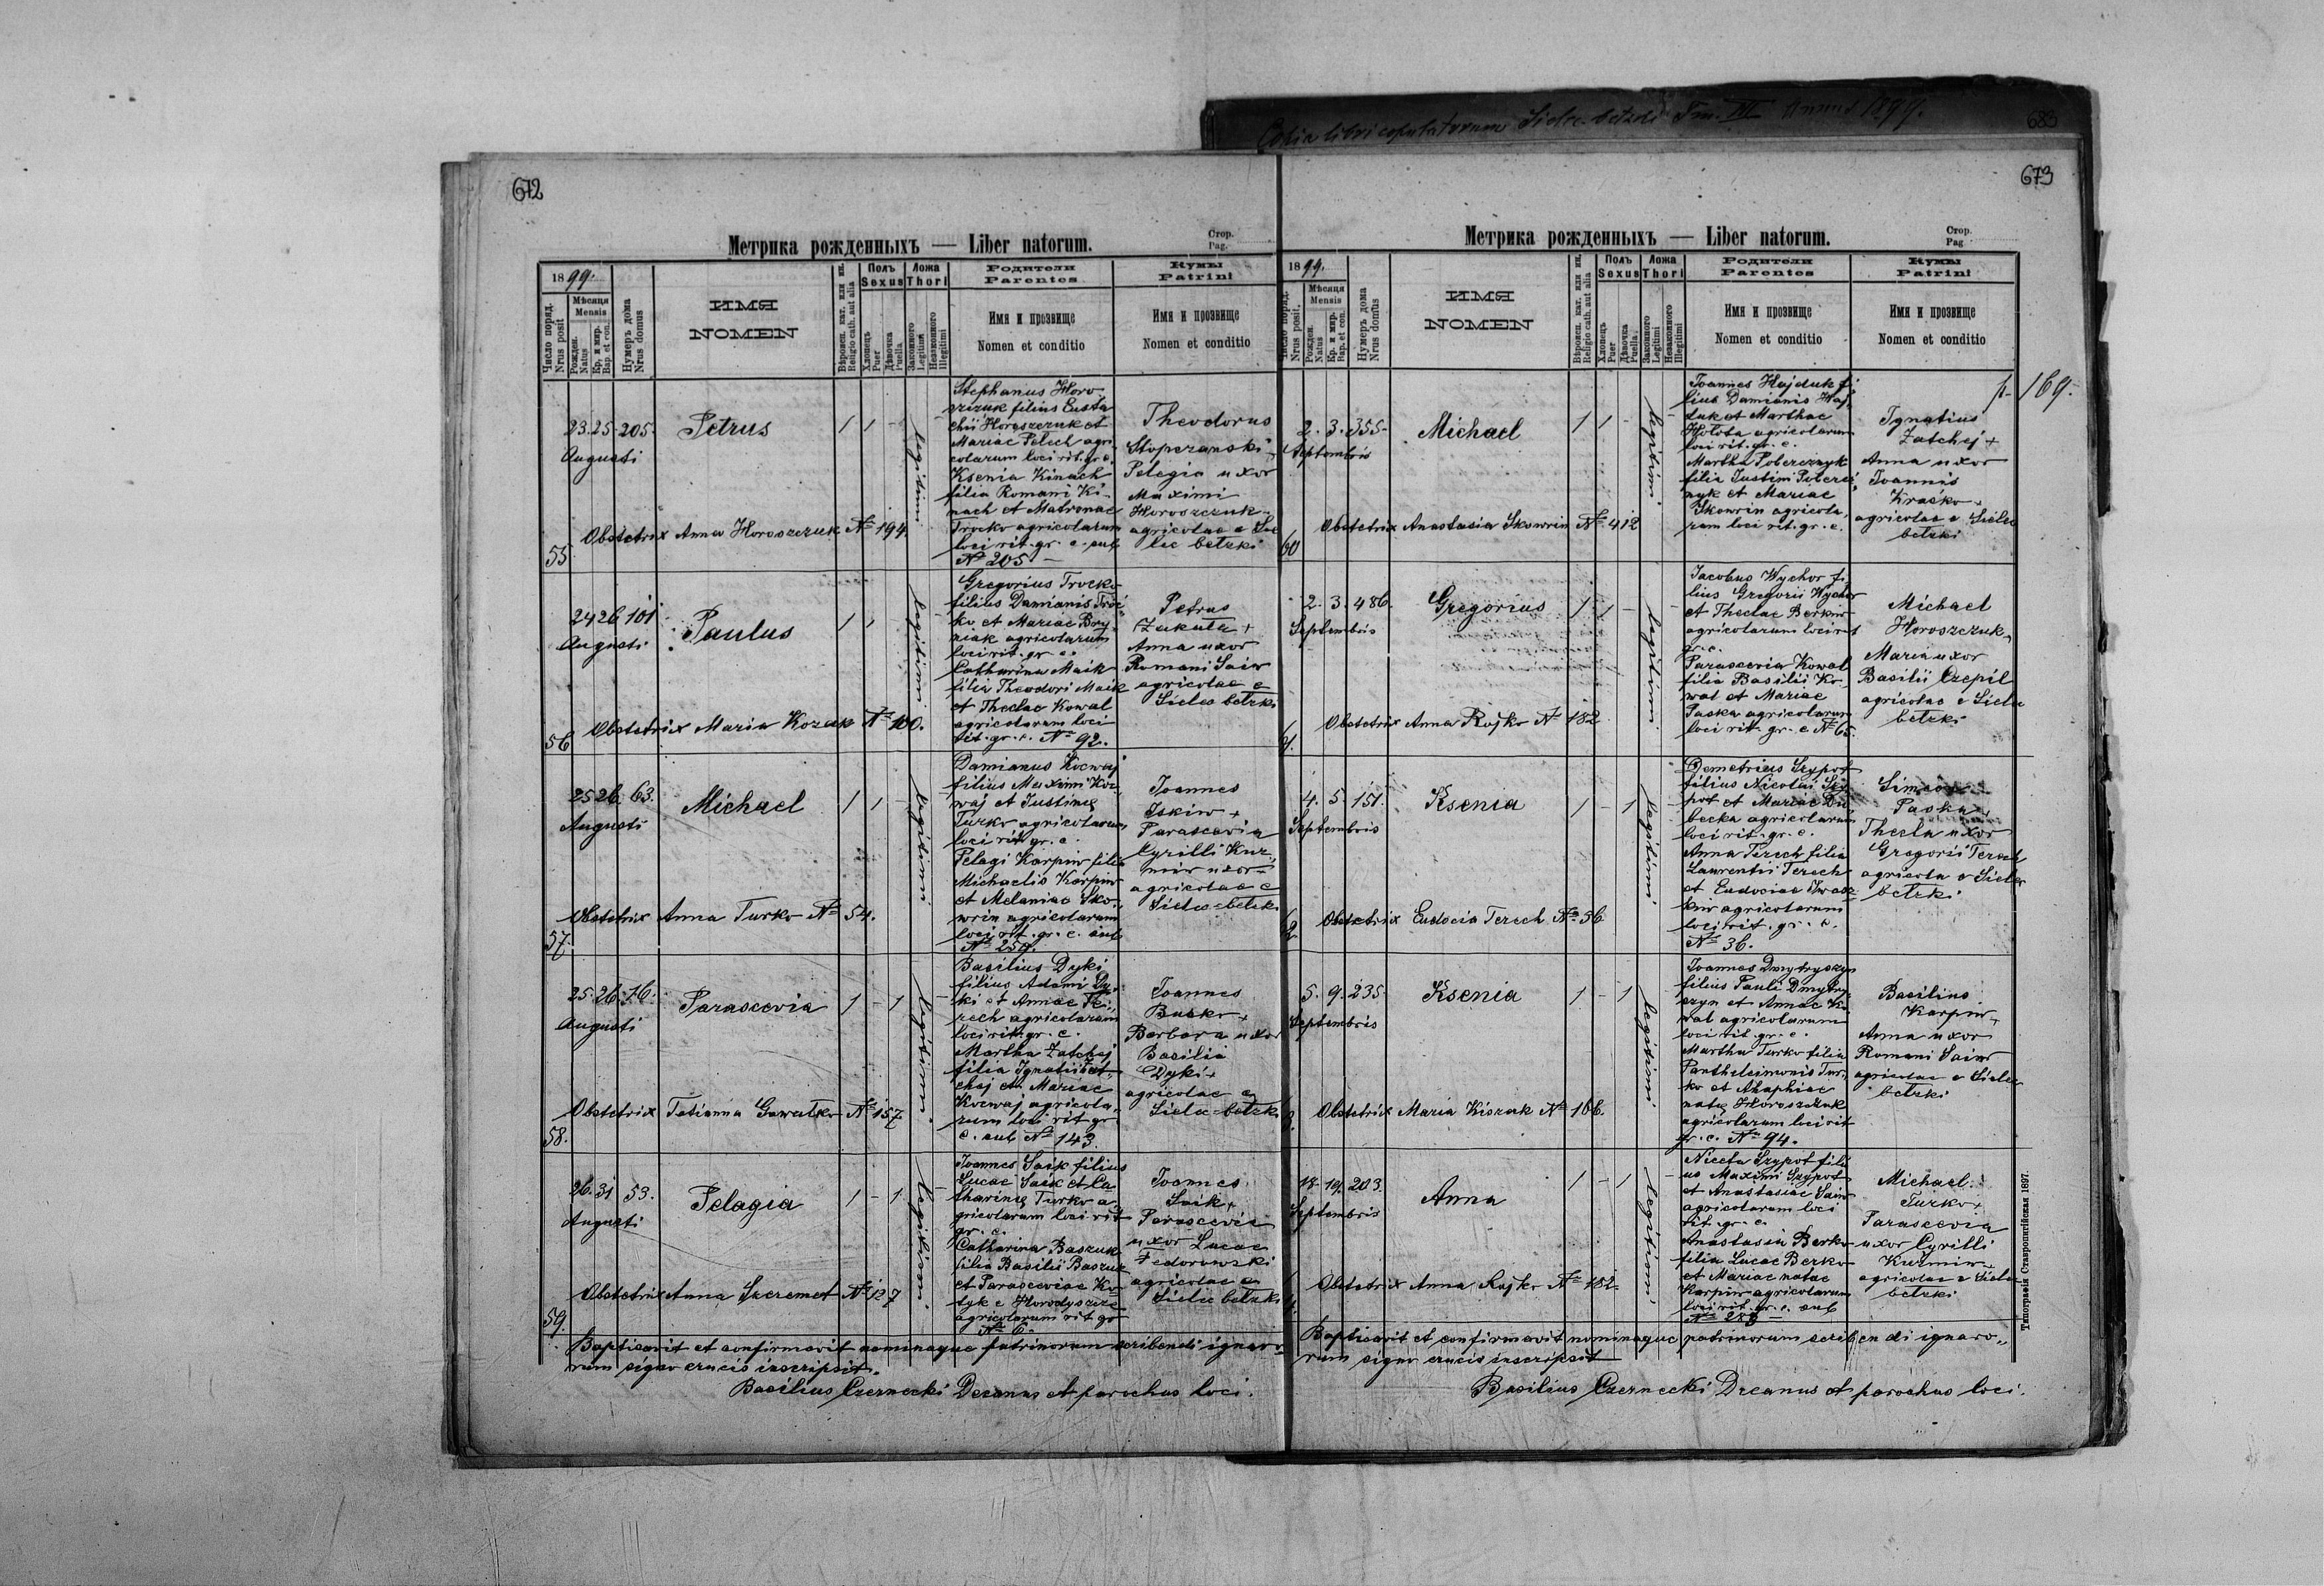 Copia libri copulatorum Sielec bełzki Tm. III Annus 1899.
683
672
Метрика рожденныхъ — Liber natorum.
Стор.
Pag.
1899.
Число поряд.
Nrus posit
Мѣсяця
Mensis
Рожден.
Natus
Кр. и мир.
Bap. et con.
Нумеръ дома
Nrus domus
ИМЯ
NOMEN
Вѣроисп. кат. или ин.
Religio cath. aut alia
Полъ
Sexus
Хлопецъ
Puer
Дѣвочка
Puella
Ложа
Thori
Законного
Legitimi
Незаконного
Illegitimi
Родители
Parentes
Имя и прозвище
Nomen et conditio
Кумы
Patrini
Имя и прозвище
Nomen et conditio
55
23. 25. 205.
Augusti
Petrus
1 1 -
legitimi
Stephanus Horo
szczuk filius Eusta
chii Horoszczuk et
Mariae Pelech agri
colarum loci rit. gr. c.
Ksenia Kinach
filia Romani Ki-
nach et Matronae
Trocko agricolarum
loci rit. gr. c. sub
No 205 —
Theodorus
Stoperanski
Pelagia uxor
Maximi
Horoszczuk
agricolae e Sie
lec bełzki
Obstetrix Anna Horoszczuk No 194.
56
24 26 101
Augusti
Paulus
1 1
legitimi
Gregorius Trocko
filius Damianis Troc
ko et Mariae Bry
niak agricolarum
loci rit. gr. c.
Catharina Maik
filia Theodori Maik
et Theclae Kowal
agricolarum loci
rit. gr. c. No 92.
Petrus
Zakuła +
Anna uxor
Romani Saiw
agricolae e
Sielec bełzki
Obstetrix Maria Kozak No 100.
57.
25 26. 63.
Augusti
Michael
1 1 -
legitimi
Damianus Kocwaj
filius Maximi Koc
waj et Justinę
Turko agricolarum
loci rit. gr. c.
Pelagi Karpiw filia
Michaelis Karpiw
et Melaniae Sko
wrin agricolarum
loci rit. gr. c. sub
No 250.
Joannes
Iskiw +
Parascevia
Cyrilli Kuz
miw uxor
agricolae e
Sielec bełzki
Obstetrix Anna Turko No 54.
58.
25. 26. 76.
Augusti
Parascevia
1 - 1
legitimi
Basilius Dyki
filius Adami Dy
ki et Annae Te
rech agricolarum
loci rit. gr. c.
Martha Zatchej
filia Ignatii Zat
chej et Mariae
Kocwaj agricola
rum loci rit gr
c. sub No 143.
Joannes
Busko +
Barbara uxor
Basilii
Dyki +
agricolae e
Sielec bełzki
Obstetrix Tatianna Gawałko No 157
59.
26. 31 53.
Augusti
Pelagia
1 - 1
legitimi
Joannes Saik filius
Lucae Saik et Ca
tharinę Turko a
gricolarum loci rit
gr. c.
Catharina Baszuk
filia Basilii Baszuk
et Parasceviae Ko
tyk e Horodyszcze
agricolarum rit gr
No 6.
Joannes
Saik +
Parascevia
uxor Lucae
Fedorowski
agricolae e
Sielec bełzki
Obstetrix Anna Szeremet No 127
Baptisavit et confirmavit nominaque patrinorum scribendi ignaro
rum signo crucis inscripsit.
Basilius Czernecki Decanus et parochus loci.
673
Метрика рожденныхъ — Liber natorum.
Стор.
Pag
1899.
Число поряд.
Nrus posit.
Мѣсяця
Mensis
Рожден.
Natus
Кр. и мир.
Bap. et con.
Нумеръ дома
Nrus domus
ИМЯ
NOMEN
Вѣроисп. кат. или ин.
Religio cath. aut alia
Полъ
Sexus
Хлопецъ
Puer
Дѣвочка
Puella
Ложа
Thori
Законного
Legitimi
Незаконного
Illegitimi
Родители
Parentes
Имя и прозвище
Nomen et conditio
Кумы
Patrini
Имя и прозвище
Nomen et conditio
p. 169.
60
2. 3. 355
Septembris
Michael
1 1 -
legitimi
Joannes Hajduk fi
lius Damianis Haj
duk et Marthae
Hołota agricolarum
loci rit. gr. c.
Martha Pobereznyk
filia Justini Poberez
nyk et Mariae
Skowrin agricola
rum loci rit. gr. c.
Ignatius
Zatchej +
Anna uxor
Joannis
Kraśko +
agricolae e Sielec
bełzki
Obstetrix Anastasia Skowrin No 412
2. 3. 486.
Septembris
Gregorius
1 1 -
legitimi
Jacobus Wychor fi
lius Gregorii Wychor
et Theclae Berkiw
agricolarum loci rit
gr. c.
Parascevia Kowal
filia Basilii Ko
wal et Mariae
Paska agricolarum
loci rit. gr. c. No 65.
Michael
Horoszczuk
Maria uxor
Basilii Czepil
agricolae e Sielec
bełzki
Obstetrix Anna Rojko No 182
4. 5. 151.
Septembris
Ksenia
1 - 1
legitimi
Demetrius Szypot
filius Nicolai Szy
pot et Mariae Du
becka agricolarum
loci rit. gr. c.
Anna Terech filia
Laurentii Terech
et Eudociae Iwasz
kiw agricolarum
loci rit. gr. c.
No 36.
Simeon
Paska +
Thecla uxor
Gregorii Terech
agricola e Sielec
bełzki
Obstetrix Eudocia Terech No 36
5. 9. 235.
Septembris
Ksenia
1 - 1
legitimi
Joannes Dmytryszyn
filius Pauli Dmytry
szyn et Annae Ko
wal agricolarum
loci rit. gr. c.
Martha Turko filia
Pantheleimonis Tur
ko et Ahaphiae
natę Horoszczuk
agricolarum loci rit
gr. c. No 94.
Basilius
Karpiw +
Anna uxor
Romani Saiw
agricolae e Sielec
bełzki
Obstetrix Maria Kiszak No 106.
18. 19. 203.
Septembris
Anna
1 - 1
legitimi
Niceta Szypot fili
us Maximi Szypot
et Anastasiae Saiw
agricolarum loci
rit. gr. c.
Anastasia Berko
filia Lucae Berko
et Mariae natae
Karpiw agricolarum
loci rit. gr. c. sub
No 203 —
Michael
Turko +
Parascevia
uxor Cyrilli
Kuzmiw
agricolae e Sielec
bełzki
Obstetrix Anna Rojko No 182
Baptisavit et confirmavit nominaque patrinorum scribendi ignaro
rum signo crucis inscripsit
Basilius Czernecki Decanus et parochus loci.
Типографія Ставропигійская 1897.